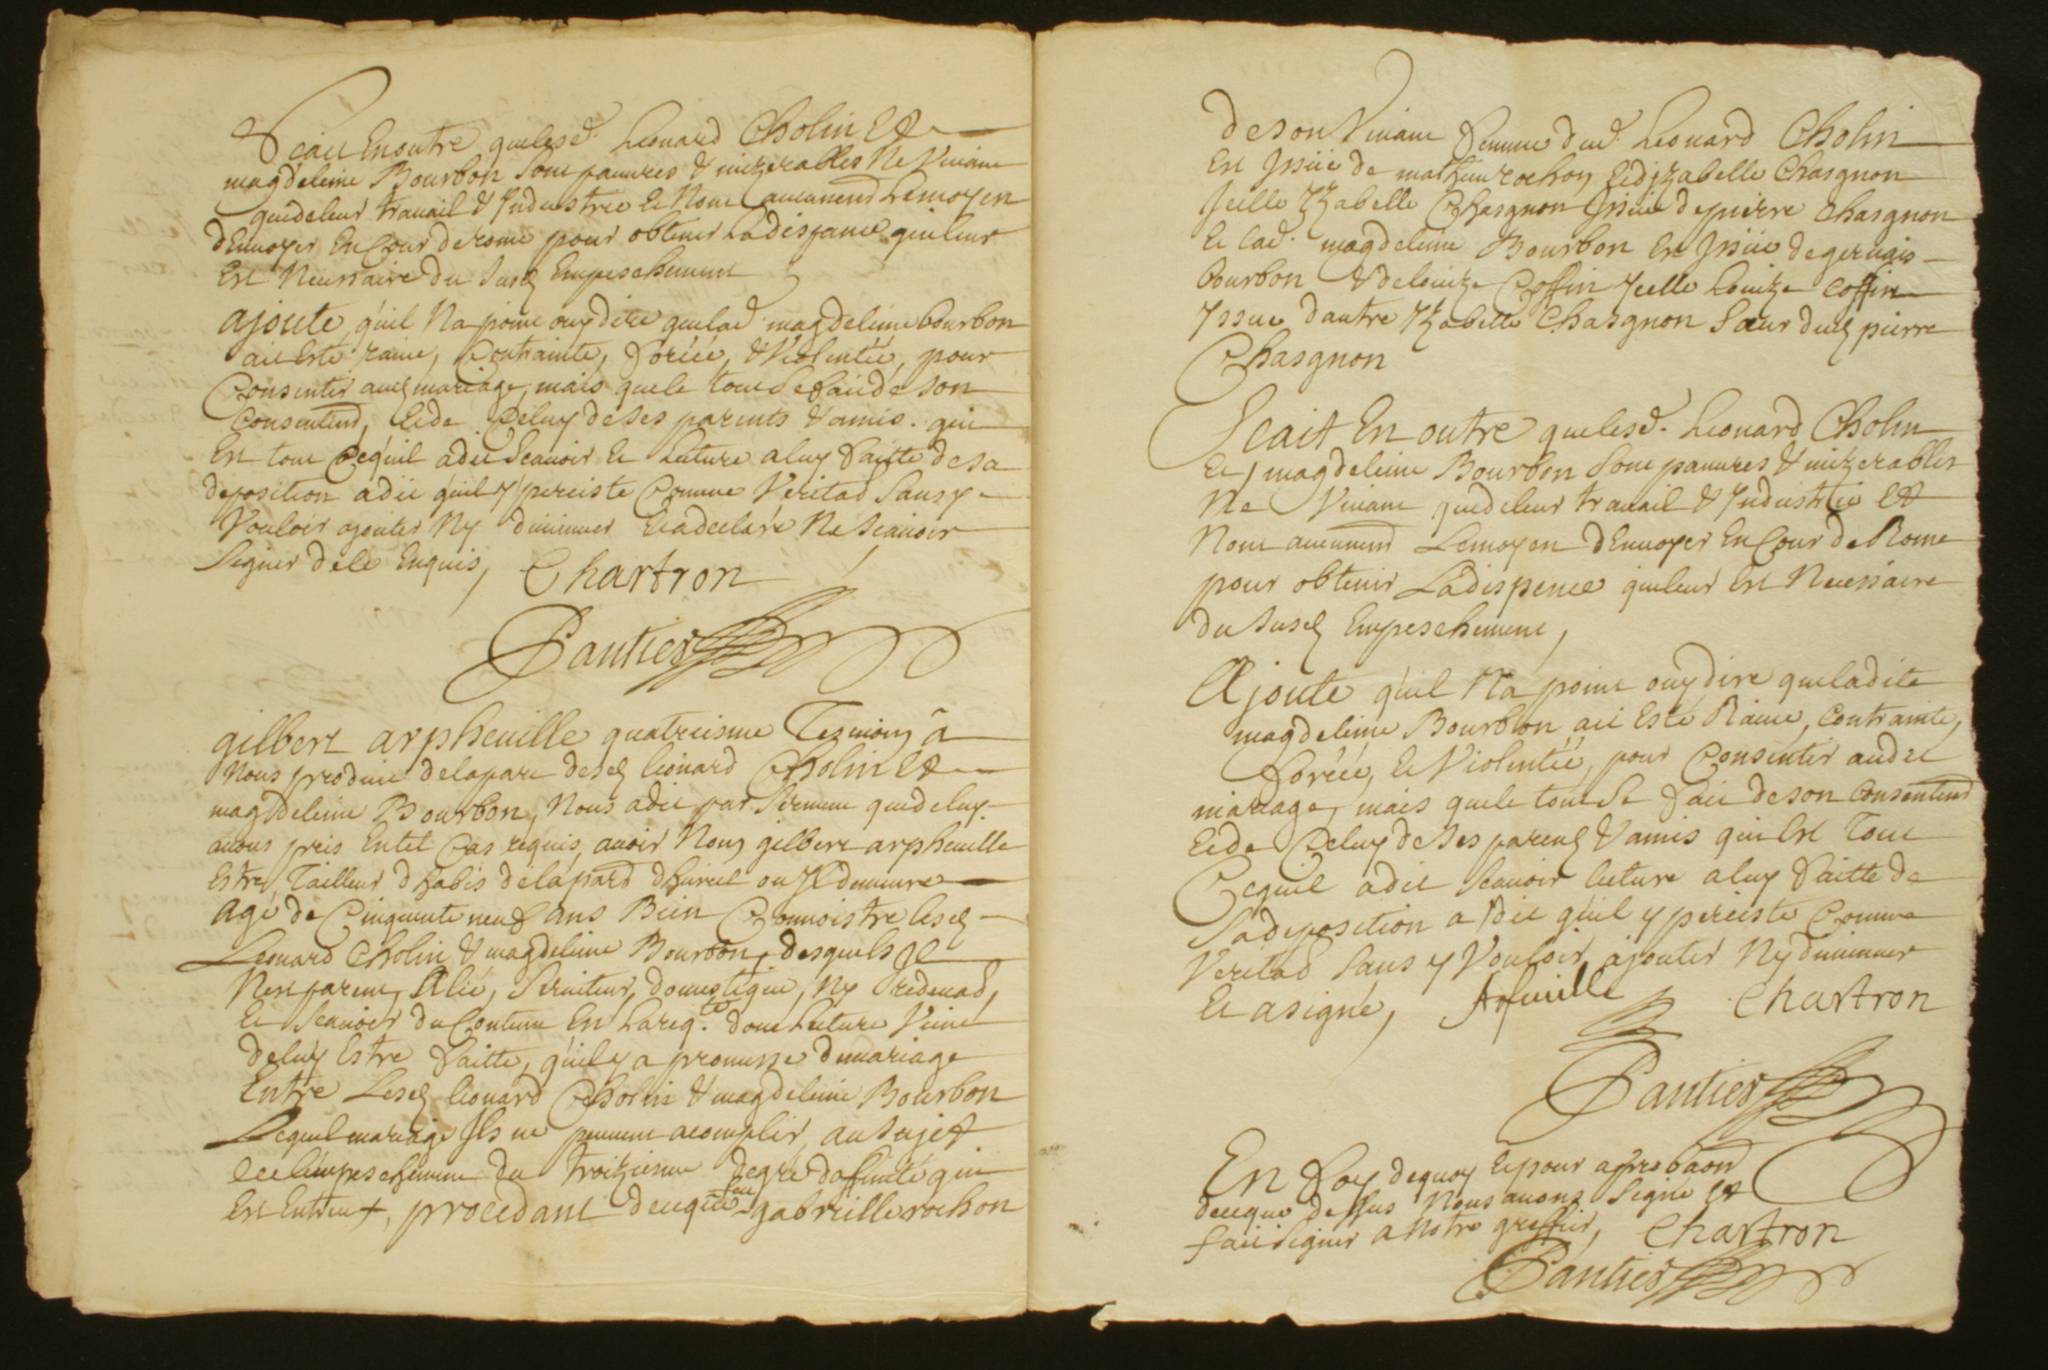 Scait En outre que lesd. Leonard Cholin Et
magdeleine Bourbon Sont pauvres & mizerables Ne Vivant
que de leur travail & Industrie Et Nont aucunemt Le moyen
dEnvoyer En Cour de rome pour obtenir La dispance qui leur
Est Necessaire du Susd Empeschement
ajoute qu'il Na point ouy dire que lad magdeleine bourbon
ait Esté ravie, Contrainte, forcée, & Violentée, pour
Consentir aud mariage, mais que le tout Se fait de Son
Consentemt, Et de Celuy de Ses parents & amis. qui
Est tout Ce qu'il a dit Scavoir Et Lecture a luy faitte de Sa
deposition a dit qu'il y perciste Comme Verité Sans y
Vouloir ajouter Ny diminuer Et a declaré Ne Scavoir
Signer de Ce Enquis, Chartron
Pantier
gilbert arpheuille quatriesme Tesmoing a
Nous produit de la part desd leonard Cholin Et
magdeleine Bourbon, Nous a dit par Serment que de luy
avons pris En tel Cas requis, avoir Nom gilbert arpheuille
Estre Tailleur dhabis de la par d'huriel ou Il demeure
agé de Cinquante neuf ans Bien Connoistre lesd
Leonard Cholin & magdeleine Bourbon, desquels Il
Nest parent, Alié, Serviteur, domestique, Ny
Et Scavoir du Contenu En La reqte dont Lecture Vient
de luy Estre faitte, qu'il y a promesse de mariage
Entre Lesd leonard Cholin & magdeleine Bourbon
Lequel mariage Ils ne peuvent acomplir au Sujet
de l'empeschement du troizieme degré daffinité qui
Est Entreux, procedant de ce que feu gabrielle rochon
de Son Vivant femme dud. Leonard Cholin
Est Issüe de mathieu rochon Et d'izabelle Chasgnon
Icelle Izabelle Chasgnon Issue de pierre Chasgnon
Et lad. magdeleine Bourbon Est Issüe de gervais
Bourbon & de louize Coffin Icelle Louize Coffin
Issue dautre Izabelle Chasgnon Sœur dud pierre
Chasgnon
Scait En outre que lesd. Leonard Cholin
Et magdeleine Bourbon Sont pauvres & mizerables
Ne Vivant que de leur travail & Industrie Et
Nont aucunemt Le moyen dEnvoyer En Cour de Rome
pour obtenir La dispence qui leur Est Necessaire
du Susd Empeschement,
Ajoute qu'il Na point ouy dire que ladite
magdeleine Bourbon ait Esté Ravie, Contrainte,
forcée, Et Violentée, pour Consentir audit
mariage, mais que le tout Se fait de Son Consentemt
Et de Celuy de Ses parens & amis qui Est Tout
Ce qu'il a dit Scavoir lecture a luy faitte de
Sa deposition a dit qu'il y perciste Comme
Verité Sans y Vouloir ajouter Ny diminuer
Et a signé, Arfeuille Chartron
Pantier
En foy de quoy Et pour aprobaon
de ce que dessus Nous avons Signé Et
fait signer a Notre greffier, Chartron
Pantier